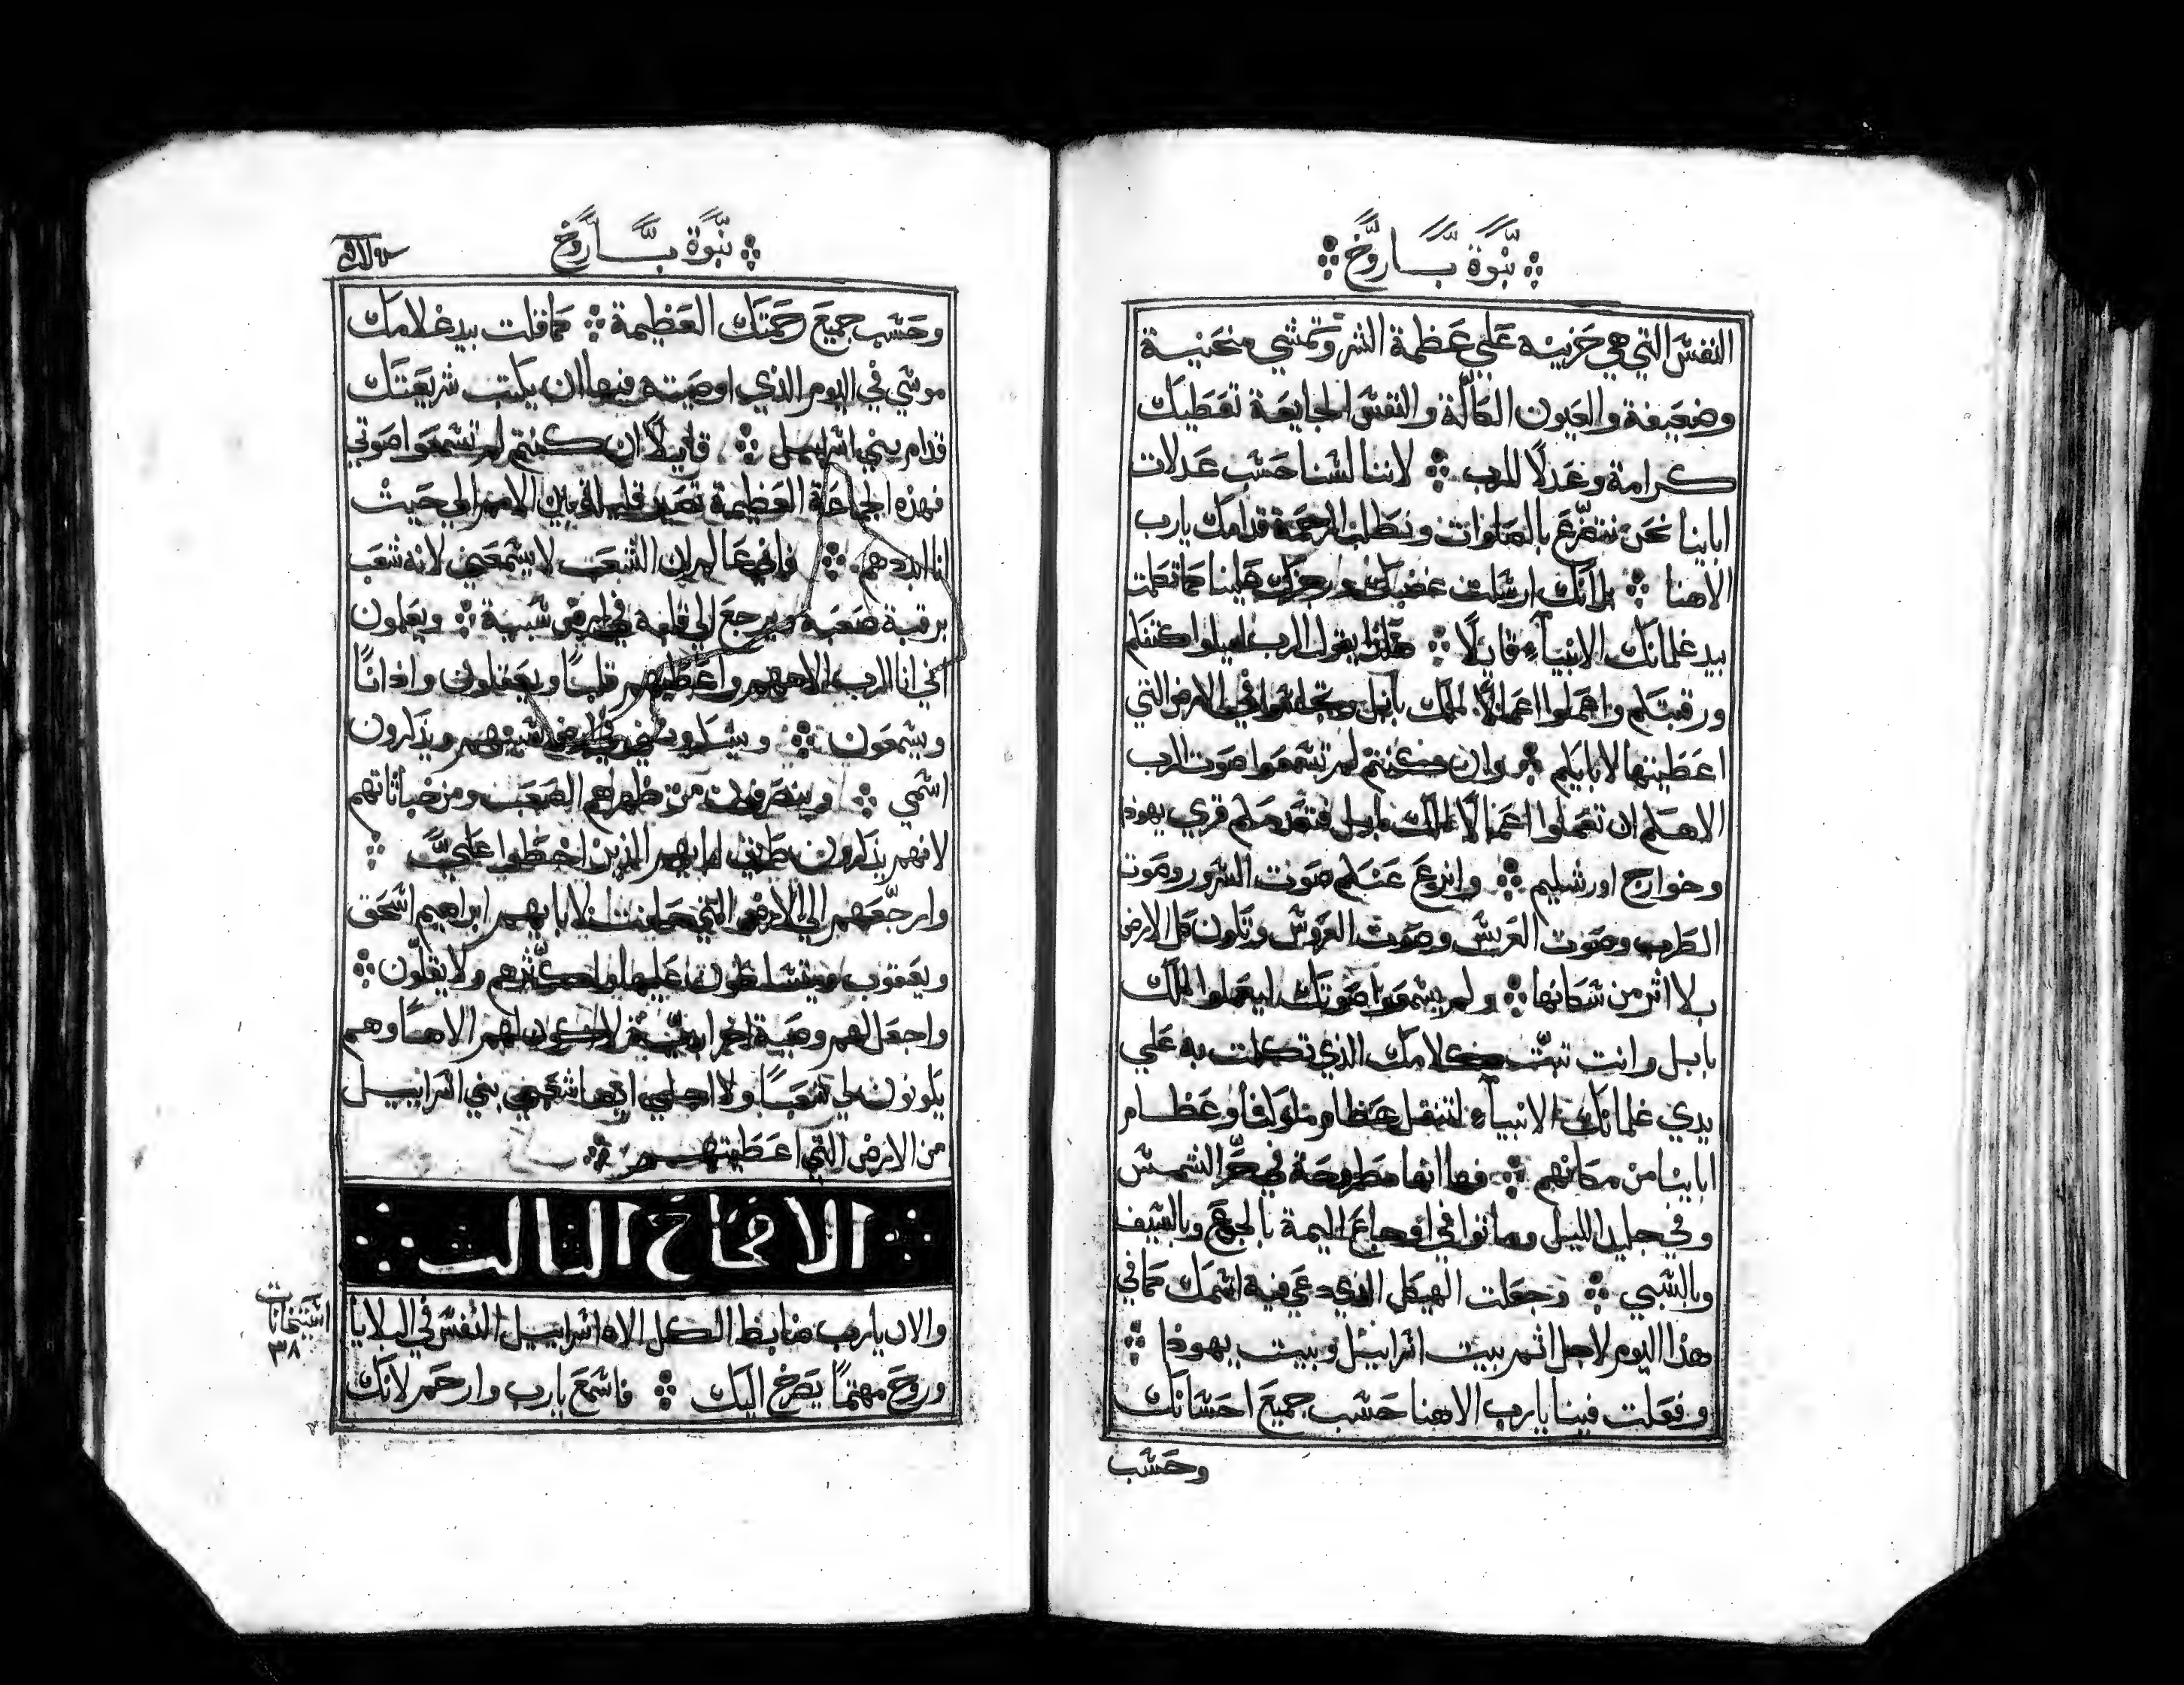 نبوة باروخ
النفس التي هي حزينه علي عظمة الشر وتمشي منحنية
وضعيفة والعيون الكالّة والنفس الجايعة تعطيك
كرامة وعدلًا للرب لاننا لسنا حسب عدلات
اباينا نحن نتضرع بالصلوات ونطلب الرحمة قدامك يارب
الاهنا بلانك ارسلت غضبك ورجزك علينا كما تكلمت
بيد غلمانك الانبياء قايلًا هكذا يقول الرب اميلوا كتفكم
ورقبتكم واعملوا اعمالًا لملك بابل وتجلسوا في الارض التي
اعطيتها لابايكم وان كنتم لم تسمعوا صوت الرب
الاهكم ان تعملوا اعمالًا لملك بابل فتعدمكم قري يهوذا
وخوارج اورشليم وانزع عنكم صوت السرور وصوت
الطرب وصوت العريس وصوت العروس وتكون كل الارض
بلا اثر من سكانها ولم يسمعوا صوتك ليعملوا لملك
بابل وانت ثبّت كلامك الذي تكلمت به علي
يدي غلمانك الانبياء لتنقل عظام ملوكنا وعظام
اباينا من مكانهم فها انها مطروحة في حرّ الشمس
وفي جليد الليل وماتوا في اوجاع اليمة بالجوع وبالسيف
وبالسبي وجعلت الهيكل الذي دعي فيه اسمك كما في
هذا اليوم لاجل اثم بيت اسراييل وبيت يهوذا
وفعلت فينا يارب الاهنا حسب جميع احسانك
وحسب
نبوة باروخ
وحسب جميع رحمتك العظيمة كما قلت بيد غلامك
موسي في اليوم الذي اوصيته فيها ان يكتب شريعتك
قدام بني اسراييل قايلًا ان كنتم لم تسمعوا صوتي
فهذه الجماعة العظيمة تصير قليلة بين الامم الي حيث
انا ابددهم فاني عالم ان الشعب لا يسمعني لانه شعب
برقبة صعبة ويرجع الي قلبه في ارض سبيه ويعلمون
اني انا الرب الاههم واعطيهم قلبًا ويعقلون واذانًا
ويسمعون ويسبحونني في ارض سبيهم ويذكرون
اسمي وينصرفون من ظهرهم الصعب ومن خباثاتهم
لانهم يذكرون طريق ابايهم الذين اخطوا عليّ
وارجّعهم الي الارض التي حلفت لابايهم ابراهيم اسحق
ويعقوب ويتسلطون عليها واكثرهم ولا يقلّون
واجعل لهم وصية اخرا ابدية لاكون لهم الاهًا وهم
يكونون لي شعبًا ولا اجلي ايضا شعبي بني اسراييل
من الارض التي اعطيتهم
الاصحاح الثالث
والان يارب ضابط الكل الاه اسراييل النفس في البلايا
وروح مهتمًا يصرخ اليك فاسمع يارب وارحم لانك
استيخانات
٣٨